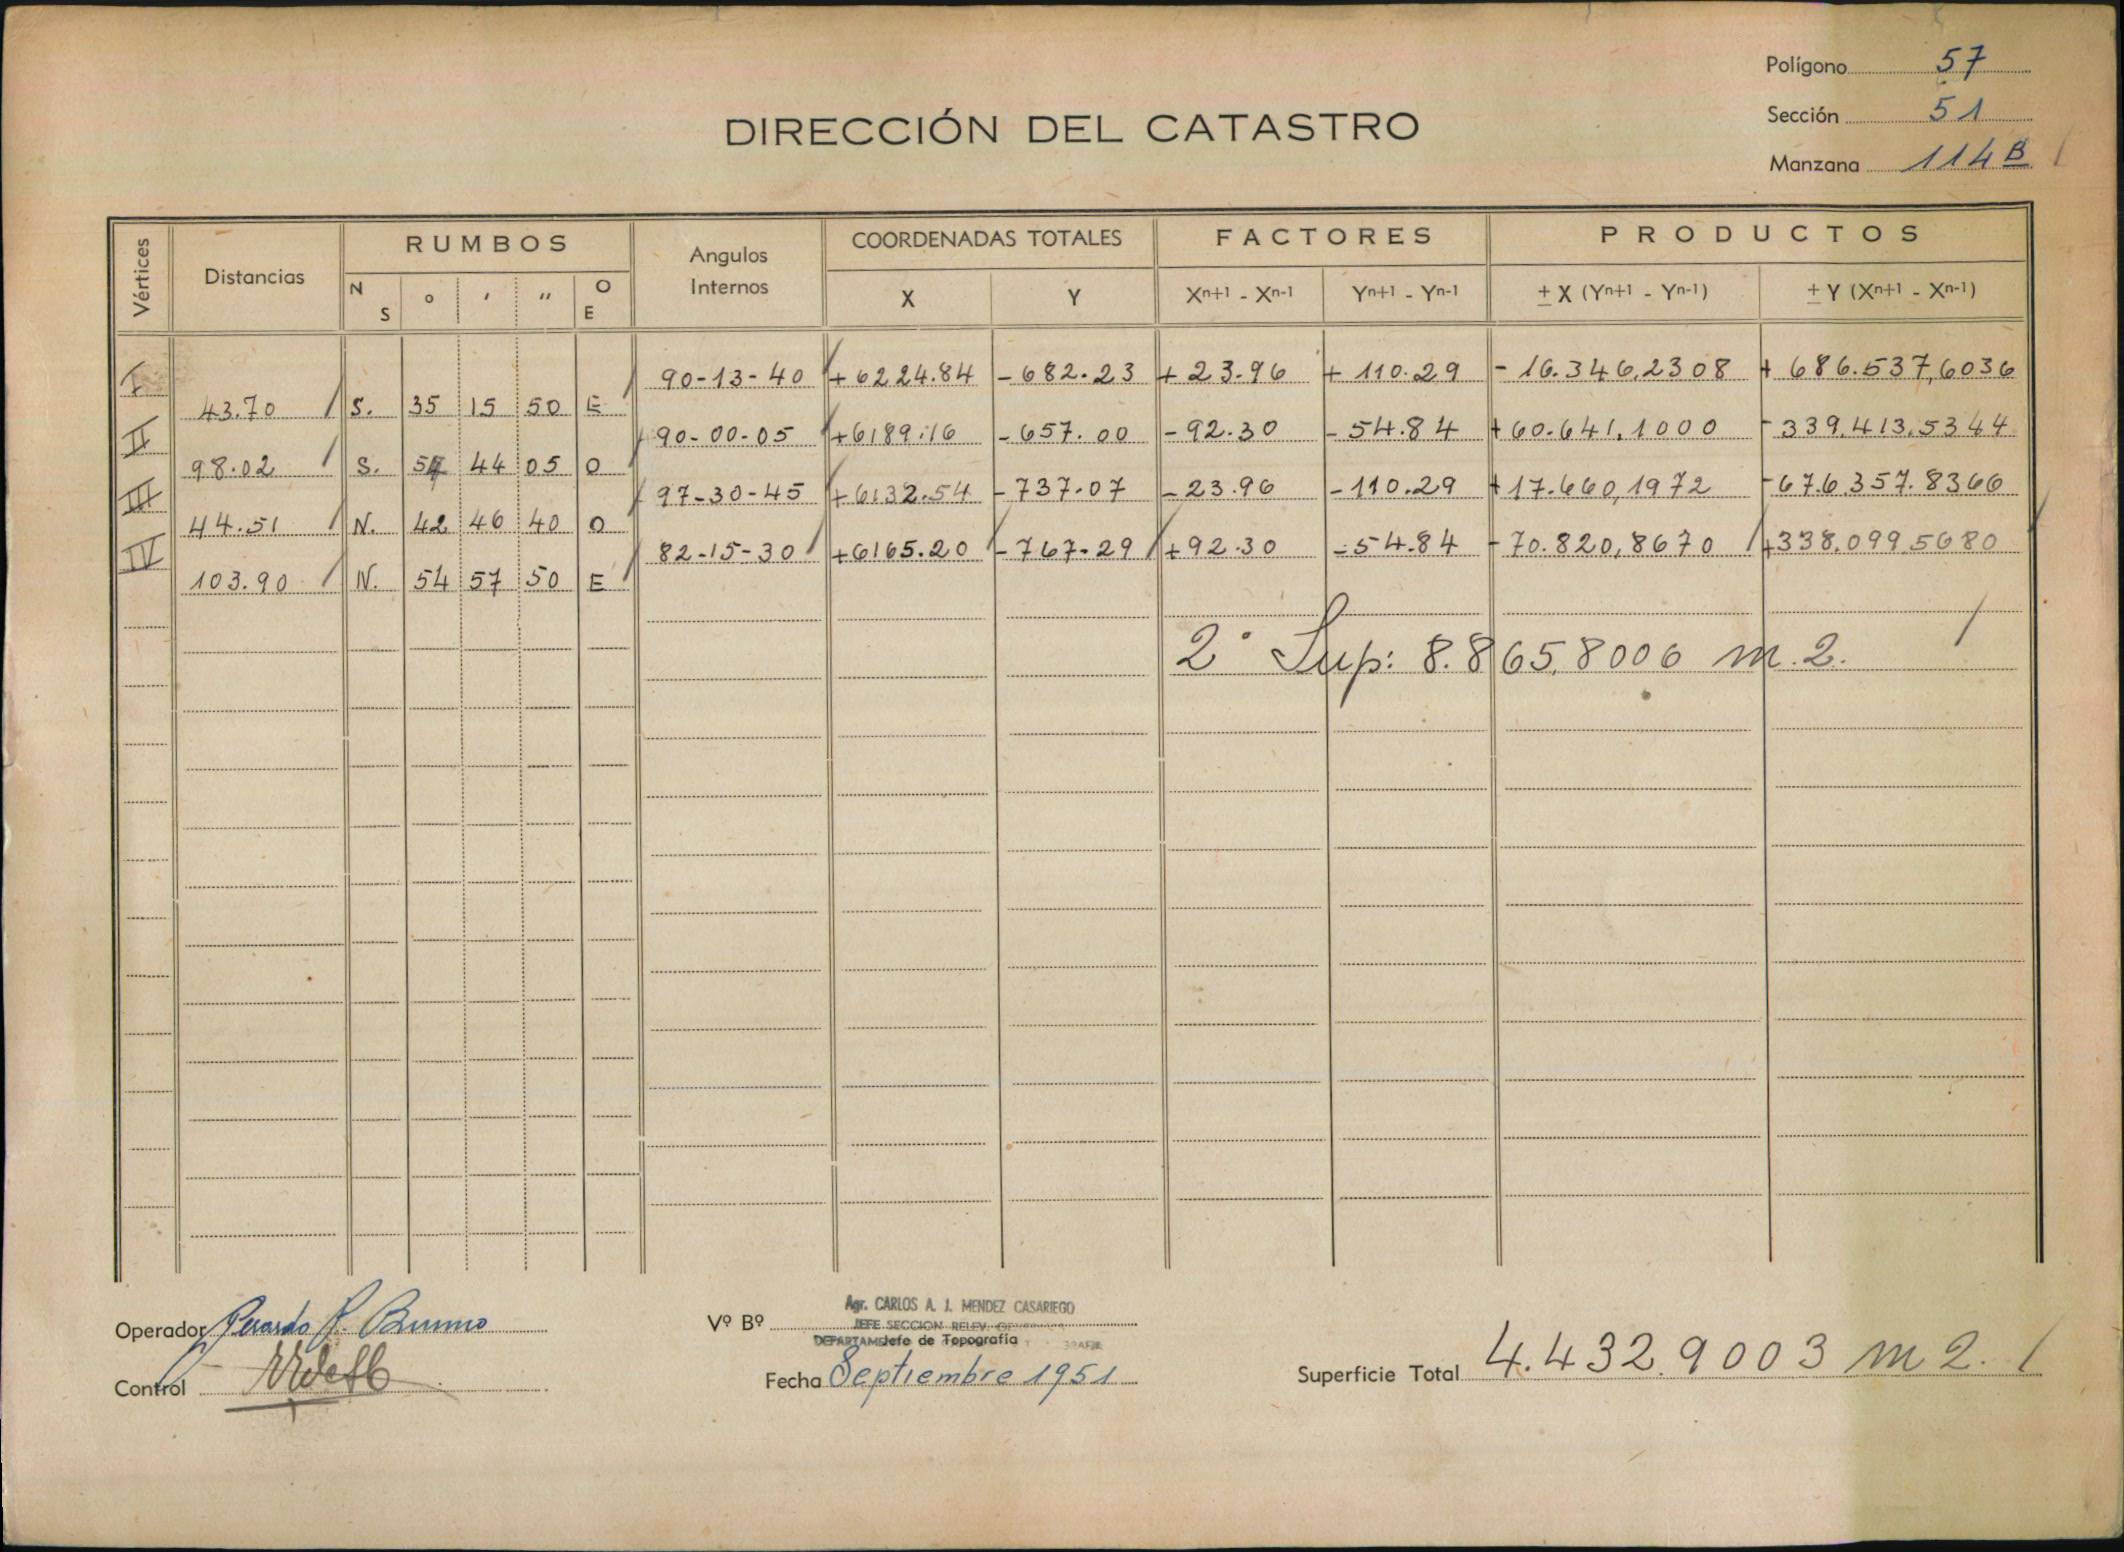 Polígono 57
Sección 51
Manzana 114 B
DIRECCIÓN DEL CATASTRO
Vértices Distancias RUMBOS Angulos Internos COORDENADAS TOTALES FACTORES PRODUCTOS
N S ° ' " O E X Y Xn+1 - Xn-1 Yn+1 - Yn-1 ± X (Yn+1 - Yn-1) ± Y (Xn+1 - Xn-1)
I 90-13-40 +6224.84 -682.23 +23.96 +110.29 -16.346,2308 +686.537,6036
43.70 S. 35 15 50 E
II 90-00-05 +6189.16 -657.00 -92.30 -54.84 +60.641,1000 -339.413,5344
98.02 S. 54 44 05 O
III 97-30-45 +6132.54 -737.07 -23.96 -110.29 +17.660,1972 -676.357.8366
44.51 N. 42 46 40 O
IV 82-15-30 +6165.20 -767.29 +92.30 -54.84 -70.820,8670 +338.099.5680
103.90 N. 54 57 50 E
2° Sup: 8.865,8006 m.2.
Operador Gerardo R. Brunno
Control
Vº Bº Agr. CARLOS A. J. MENDEZ CASARIEGO
JEFE SECCION RELEV.
Jefe de Topografía
Fecha Septiembre 1951
Superficie Total 4.432.9003 m2.